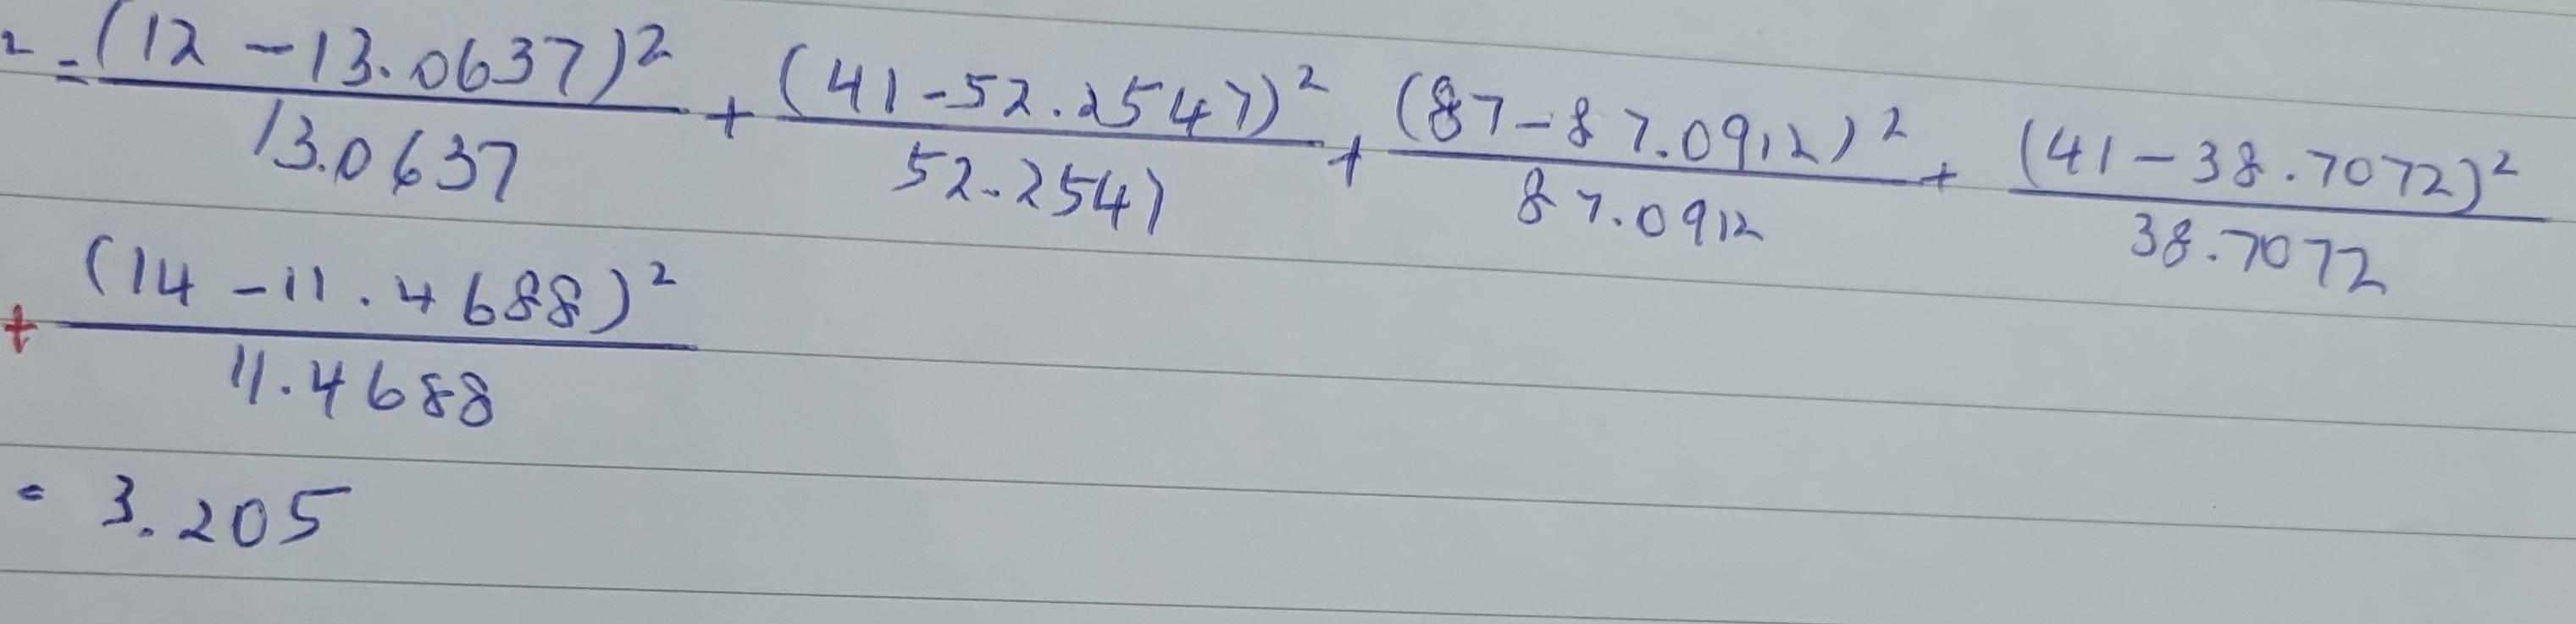 ² = (12 - 13.0637)² / 13.0637 + (41 - 52.2547)² / 52.2547 + (87 - 87.0912)² / 87.0912 + (41 - 38.7072)² / 38.7072
+ (14 - 11.4688)² / 11.4688
= 3.205